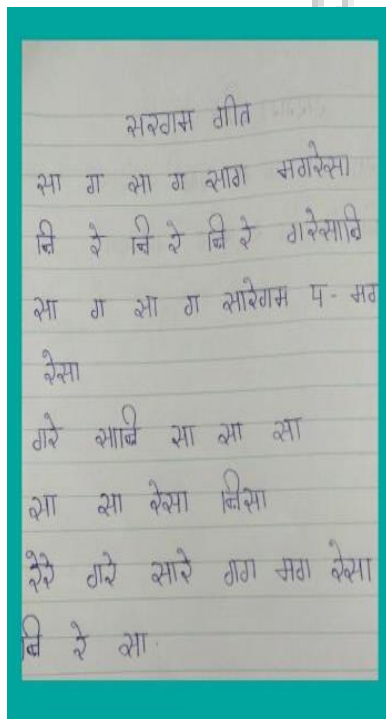 सरगम गीत
सा ग सा ग साग मगरेसा
नि॒ रे नि॒ रे नि॒ रे गरेसानि॒
सा ग सा ग सारेगम प - मग
रेसा
गरे सानि॒ सा सा सा
सा सा रेसा नि॒सा
रेरे गरे सारे गग मग रेसा
नि॒ रे सा.